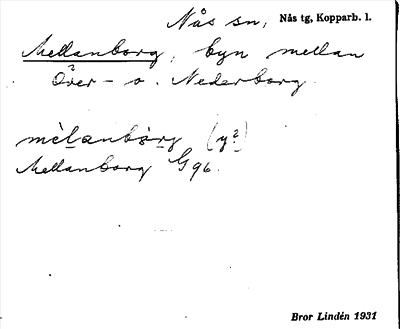 Nås sn, Nås tg, Kopparb. l.
Mellanborg, byn mellan
Över- o. Nederborg
mèlanbòrg (y?)
Mellanborg G 96.
Bror Lindén 1931